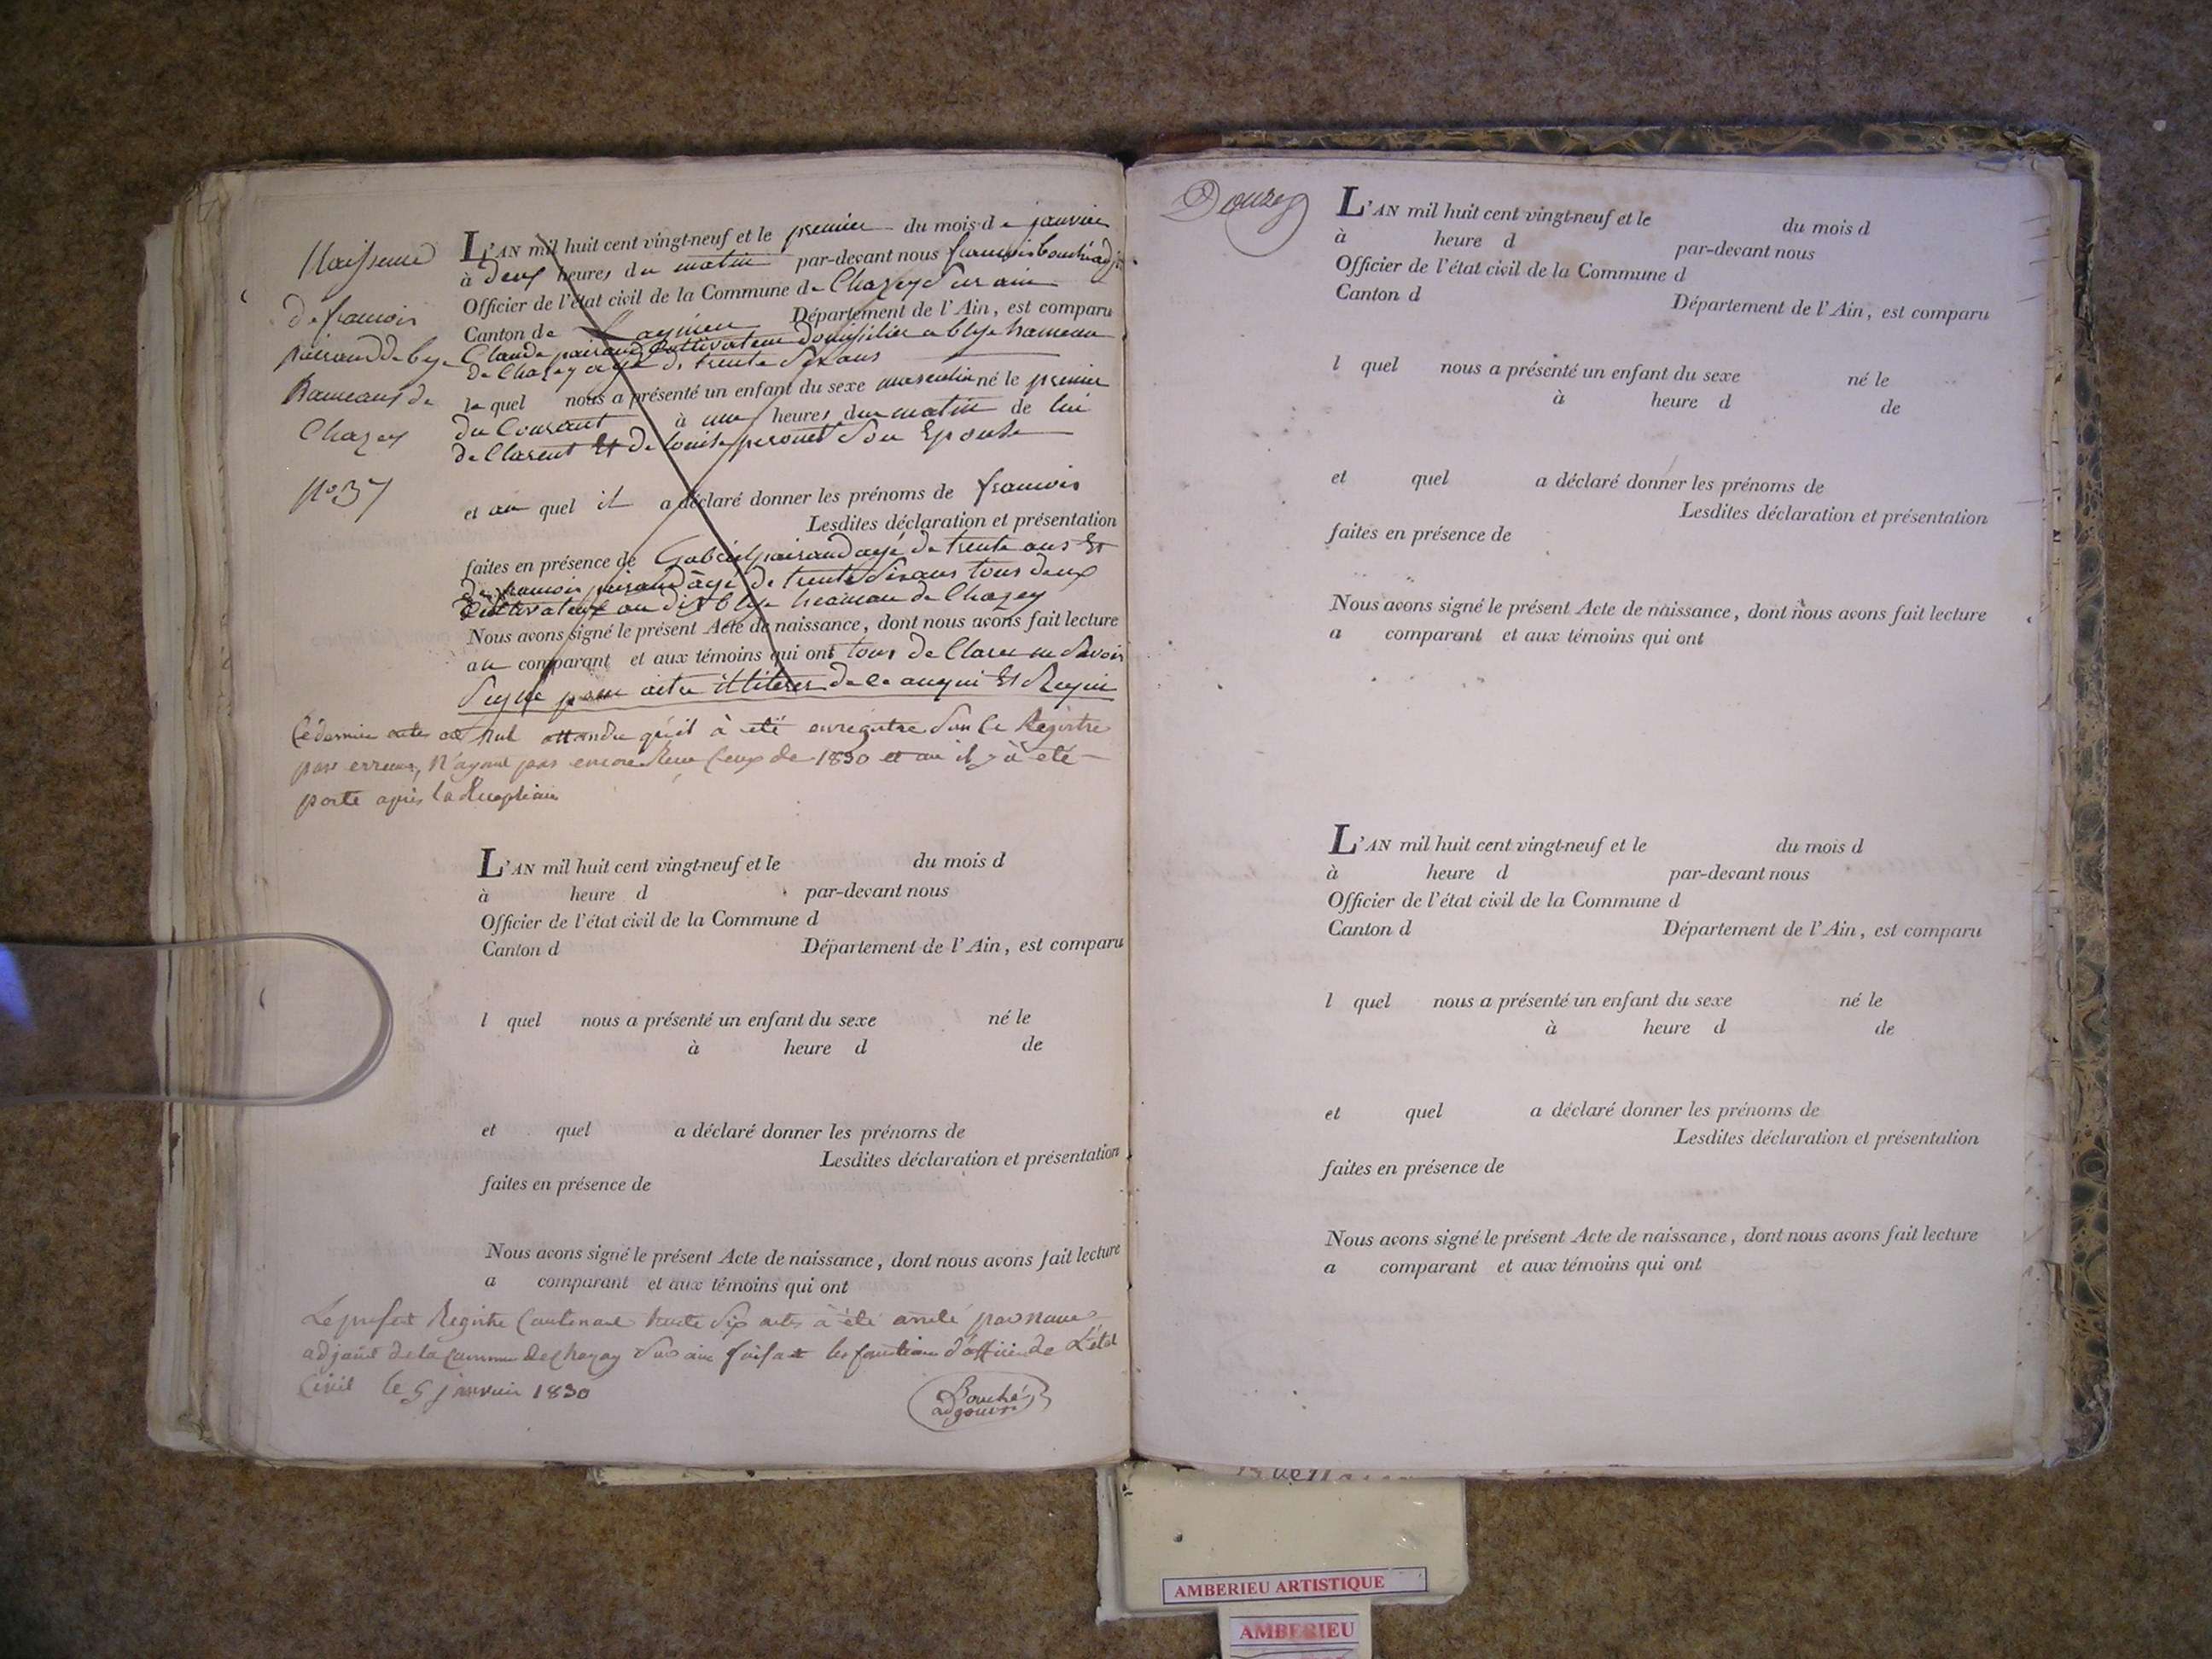 Naissance
de francois
peiraud de blye
hameaux de
Chazey
N° 37
L'AN mil huit cent vingt-neuf et le premier du mois de janvier
à deux heures du matin par-devant nous francois bouché adj
Officier de l'état civil de la Commune de Chazey Sur ain
Canton de Lagnieu Département de l'Ain, est comparu
Claude peiraud Cultivateur domisilier a blye hameau
de Chazey agé de trente Six ans
le quel nous a présenté un enfant du sexe masculin né le premier
du Courant à une heures du matin de lui
de Clarent Et de louise peronet Son Epouse
et au quel il a déclaré donner les prénoms de francois
Lesdites déclaration et présentation
faites en présence de Gabriel peiraud agé de trente ans Et
de francois peiraud âgé de trente Six ans tous deux
Cultivateur au dit blye hameau de Chazey
Nous avons signé le présent Acte de naissance, dont nous avons fait lecture
au comparant et aux témoins qui ont tous de Claré ne Savoir
Signé pour aitre illiterés de ce anqui Et Requi
Ce dernier acte est Nul attandu qu'il à eté enregistre Sur le Registre
par erreur, N'ayant pas encore Reçu Ceux de 1830 et au il y à eté
porté apres la Reception
L'AN mil huit cent vingt-neuf et le du mois d
à heure d par-devant nous
Officier de l'état civil de la Commune d
Canton d Département de l'Ain, est comparu
l quel nous a présenté un enfant du sexe né le
à heure d de
et quel a déclaré donner les prénoms de
Lesdites déclaration et présentation
faites en présence de
Nous avons signé le présent Acte de naissance, dont nous avons fait lecture
a comparant et aux témoins qui ont
Le present Registre Contenant trente Six actes à été arreté par nous
adjoint de la Commune de Chazay Sur ain faisant les fonctions d'officier de L'état
Civil le 5 janvier 1830
Bouché
adgouin
Douze
L'AN mil huit cent vingt-neuf et le du mois d
à heure d par-devant nous
Officier de l'état civil de la Commune d
Canton d Département de l'Ain, est comparu
l quel nous a présenté un enfant du sexe né le
à heure d de
et quel a déclaré donner les prénoms de
Lesdites déclaration et présentation
faites en présence de
Nous avons signé le présent Acte de naissance, dont nous avons fait lecture
a comparant et aux témoins qui ont
L'AN mil huit cent vingt-neuf et le du mois d
à heure d par-devant nous
Officier de l'état civil de la Commune d
Canton d Département de l'Ain, est comparu
l quel nous a présenté un enfant du sexe né le
à heure d de
et quel a déclaré donner les prénoms de
Lesdites déclaration et présentation
faites en présence de
Nous avons signé le présent Acte de naissance, dont nous avons fait lecture
a comparant et aux témoins qui ont
AMBERIEU ARTISTIQUE
AMBERIEU